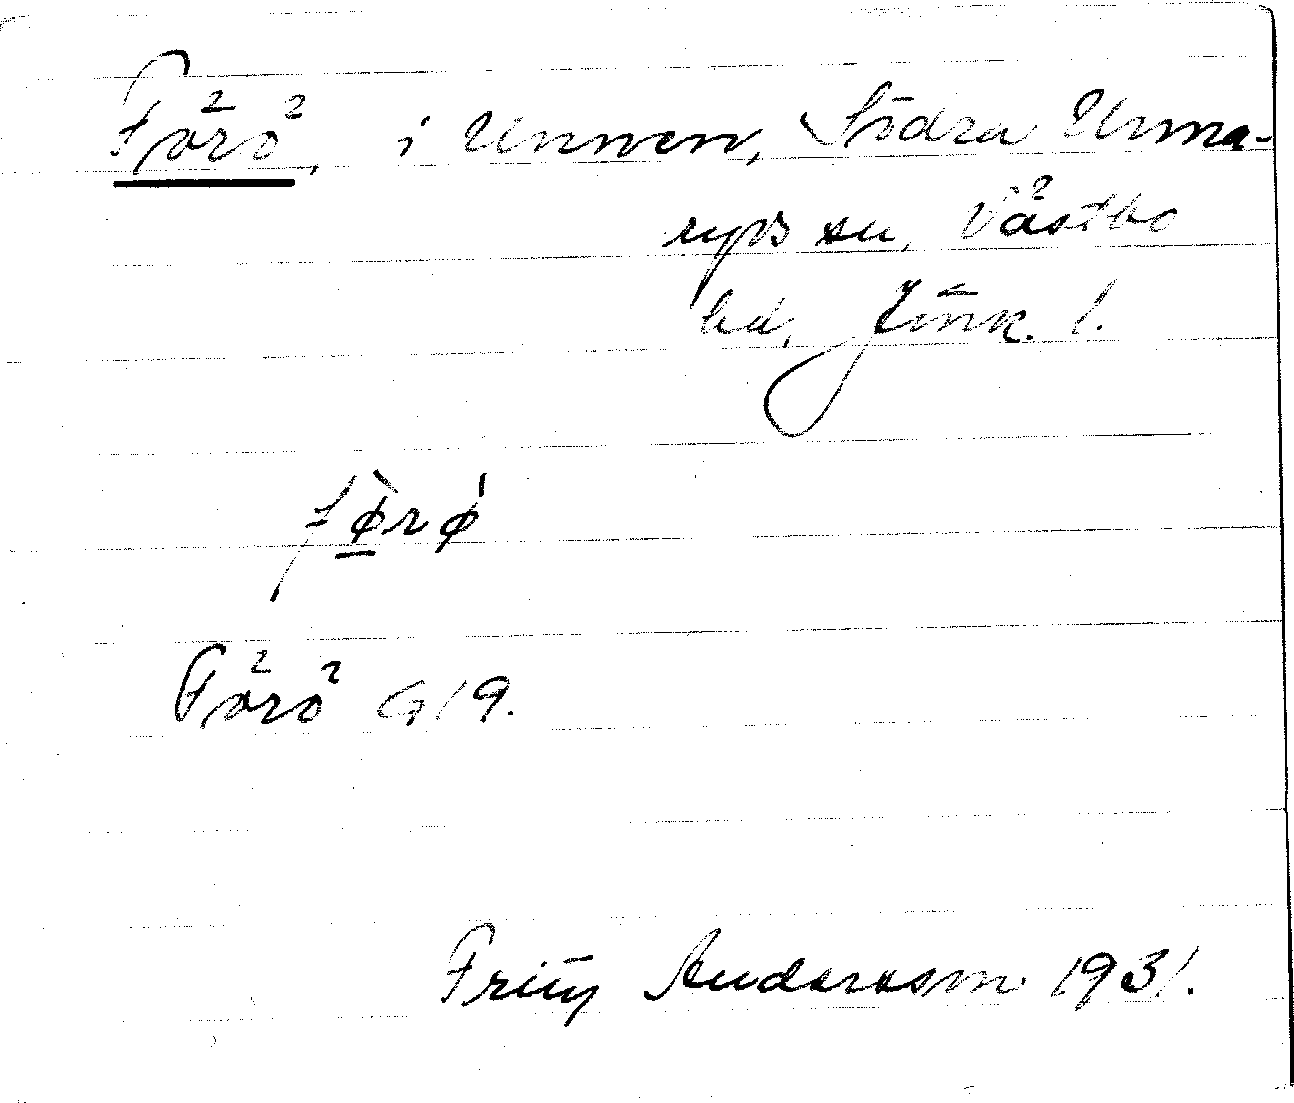 Förö, i Unnen, Södra Unna-
ryds sn, Västbo
hd, Jönk. l.
fø̀rǿ
Förö G 19.
Fritz Andersson 1931.